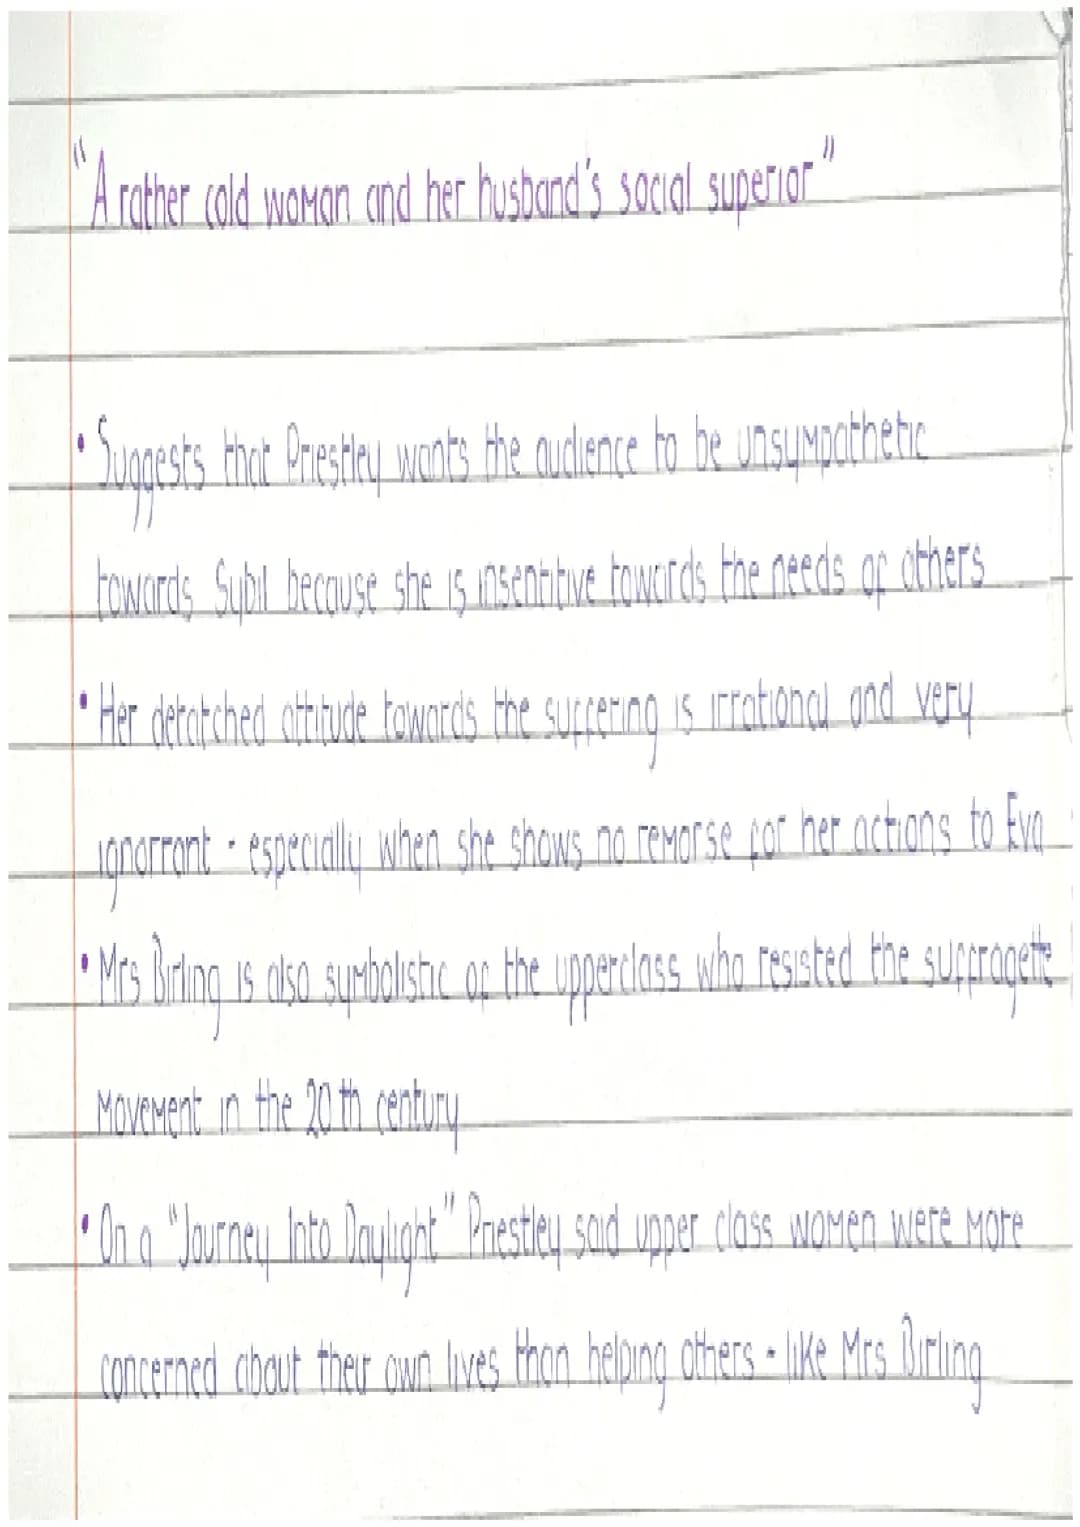 "A rather cold woman and her husband's social superior"
• Suggests that Priestley wants the audience to be unsympathetic
towards Sybil because she is insentitive towards the needs of others
• Her detatched attitude towards the suffering is irrational and very
ignorrant - especially when she shows no remorse for her actions to Eva
• Mrs Birling is also symbolistic of the upperclass who resisted the suffragette
movement in the 20th century
• On a "Journey Into Daylight" Priestley said upper class women were more
concerned about their own lives than helping others - like Mrs Birling